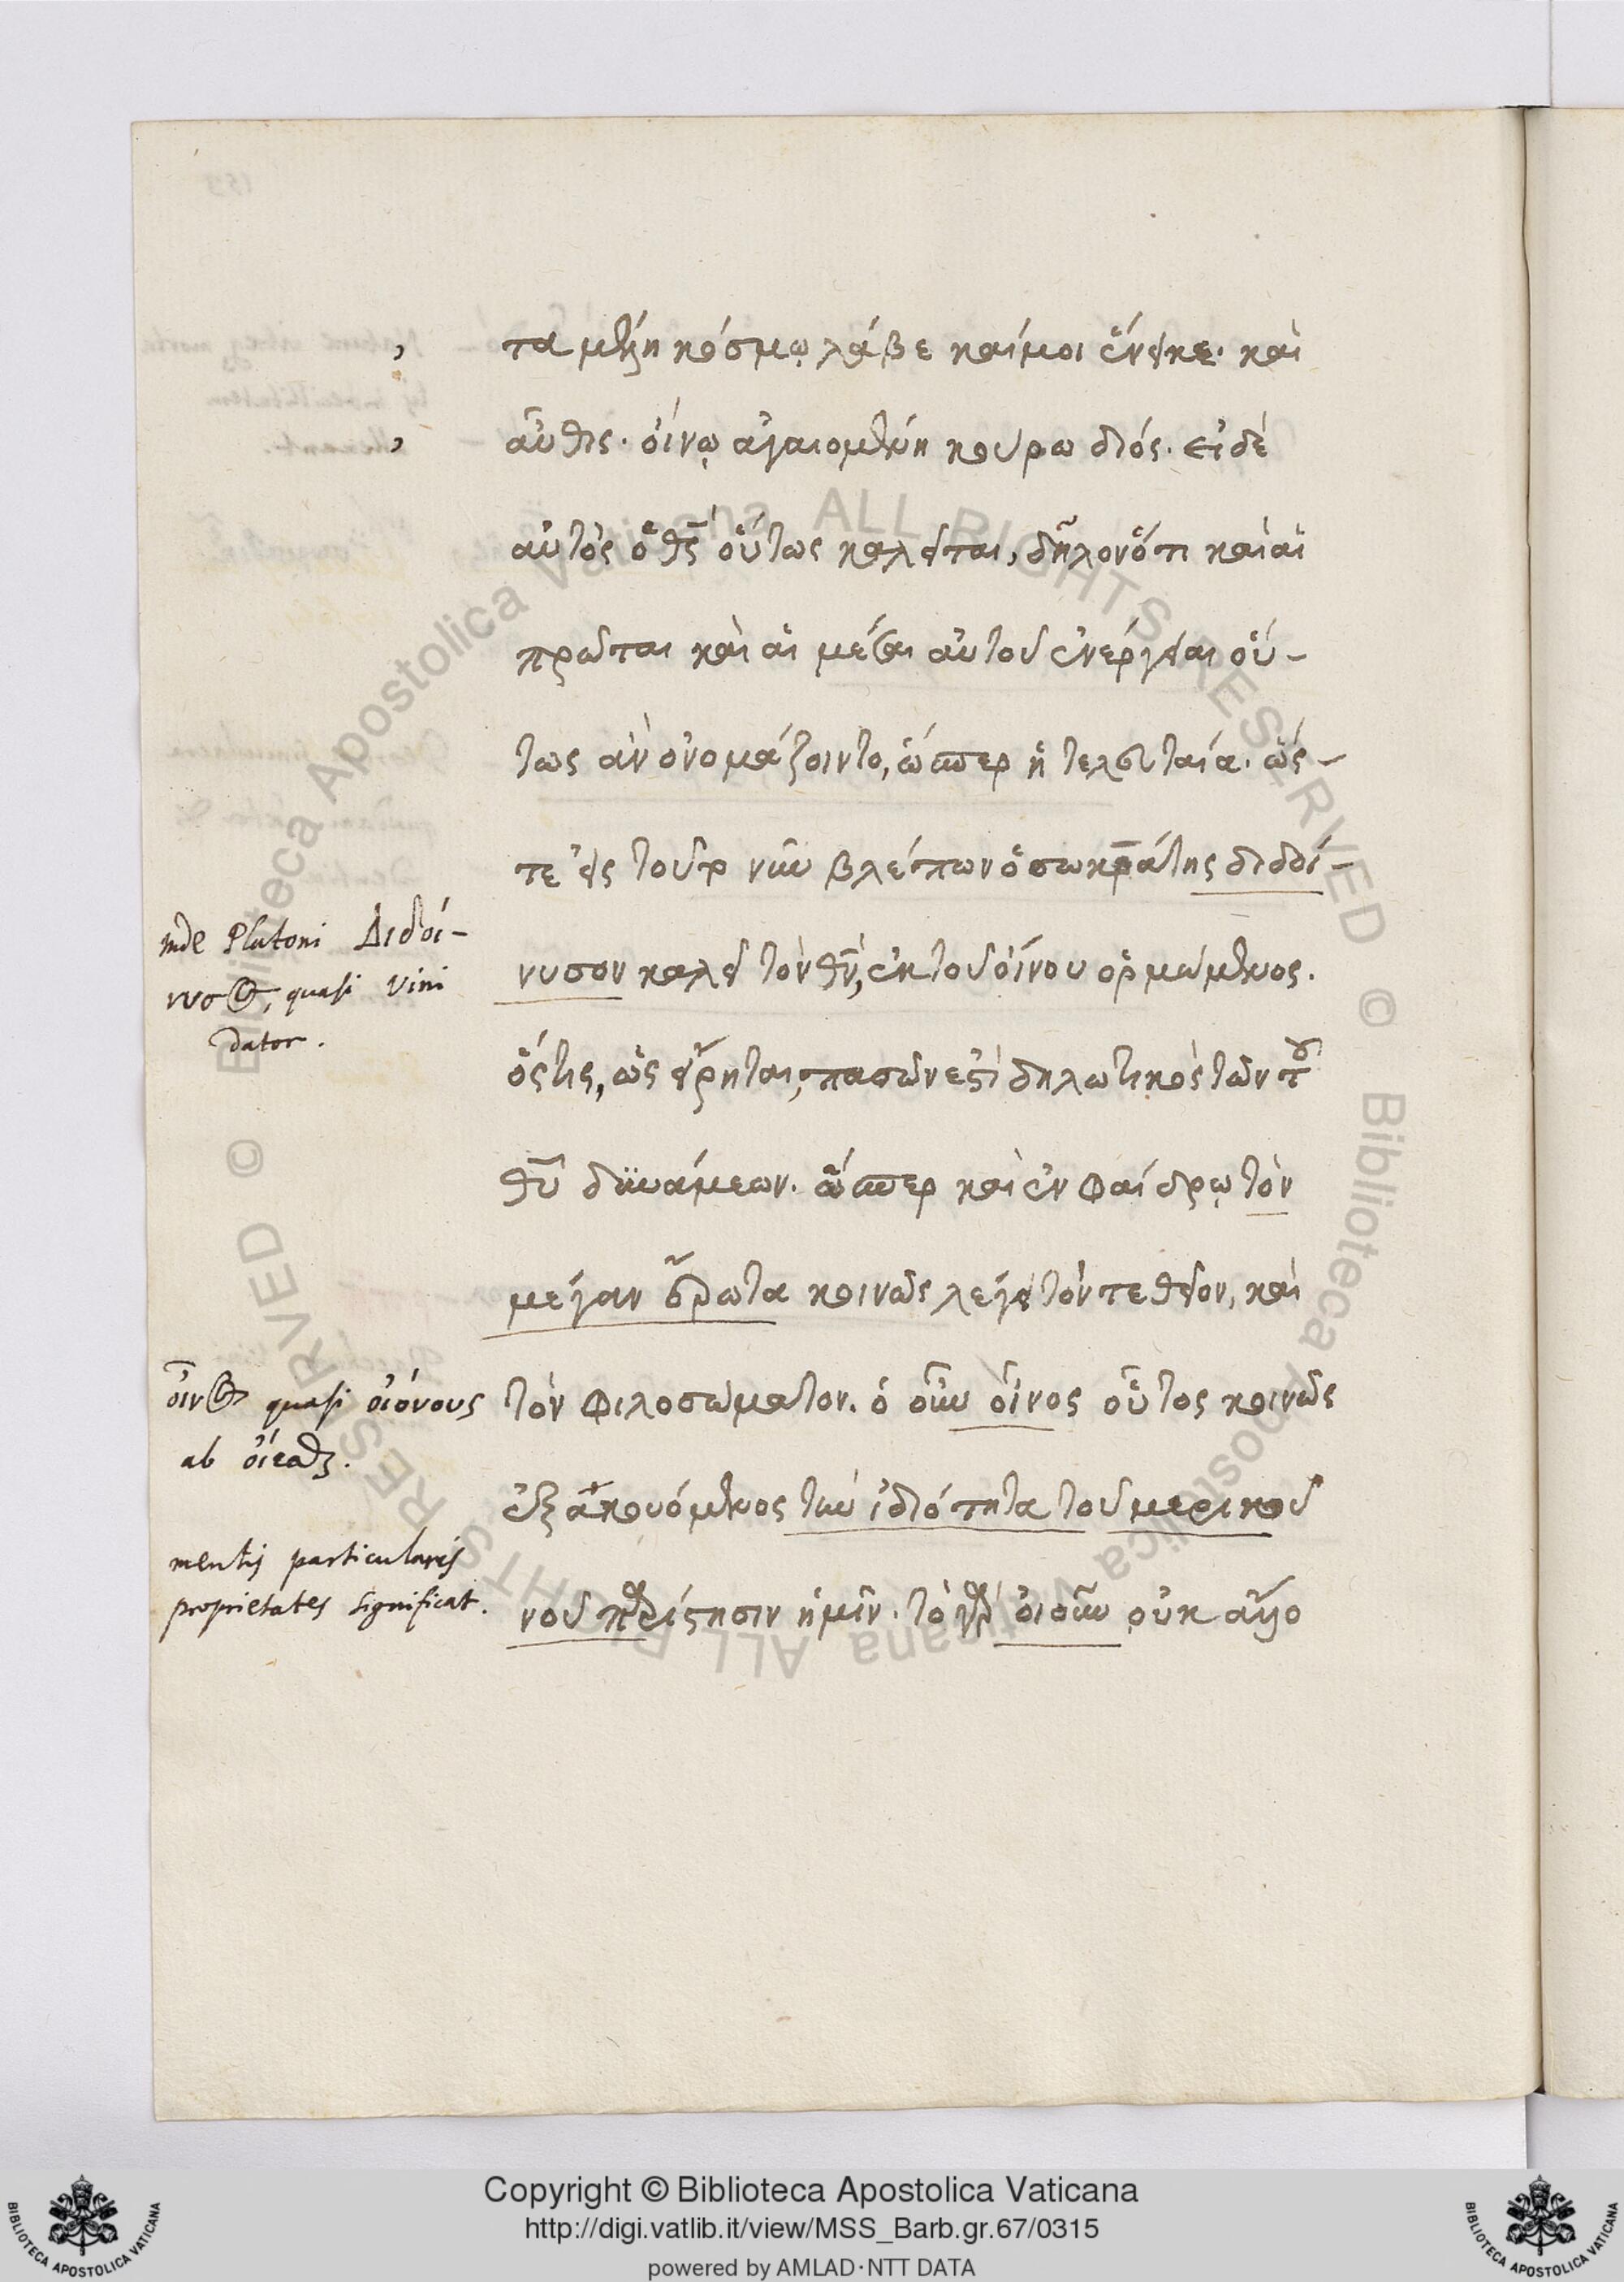 τα μελη κόσμῳ λάβε καί μοι ἔνεικε. καὶ
αὖθις. οἴνῳ ἀγαιομένη κούρω διός. εἰ δὲ
αὐτὸς ὁ θς οὕτως καλεῖται, δῆλον ὅτι καὶ αἱ
πρῶται καὶ αἱ μέσαι αὐτοῦ ἐνέργειαι οὕ-
τως ἂν ὀνομάζοιντο, ὥσπερ ἡ τελευταία. ὥς-
τε εἰς τοῦτο νῦν βλέπων ὁ σωκράτης διδοί-
νυσον καλεῖ τὸν θν, ἐκ τοῦ οἴνου ὁρμώμενος.
ὅστις, ὡς εἴρηται, πασῶν ἐστὶ δηλωτικὸς τῶν τοῦ
θυ δυνάμεων. ὥσπερ καὶ ἐν Φαίδρῳ τὸν
μέγαν ἔρωτα κοινῶς λέγει τόν τε θεῖον, καὶ
τὸν φιλοσώματον. ὁ οὖν οἶνος οὗτος κοινῶς
ἐξακουόμενος τὴν ἰδιότητα τοῦ μερικοῦ
νοῦ παρίστησιν ἡμῖν. τὸ γὰρ οἱοῦν οὐκ ἄλλο
inde Platoni Διδοί-
νυσος, quasi vini
dator.
οἶνος quasi οἰόνους
ab οἴεσθαι.
mentis particularis
proprietates significat.
Copyright © Biblioteca Apostolica Vaticana
http://digi.vatlib.it/view/MSS_Barb.gr.67/0315
powered by AMLAD·NTT DATA
BIBLIOTECA APOSTOLICA VATICANA
BIBLIOTECA APOSTOLICA VATICANA
© Biblioteca Apostolica Vaticana ALL RIGHTS RESERVED
© Biblioteca Apostolica Vaticana ALL RIGHTS RESERVED